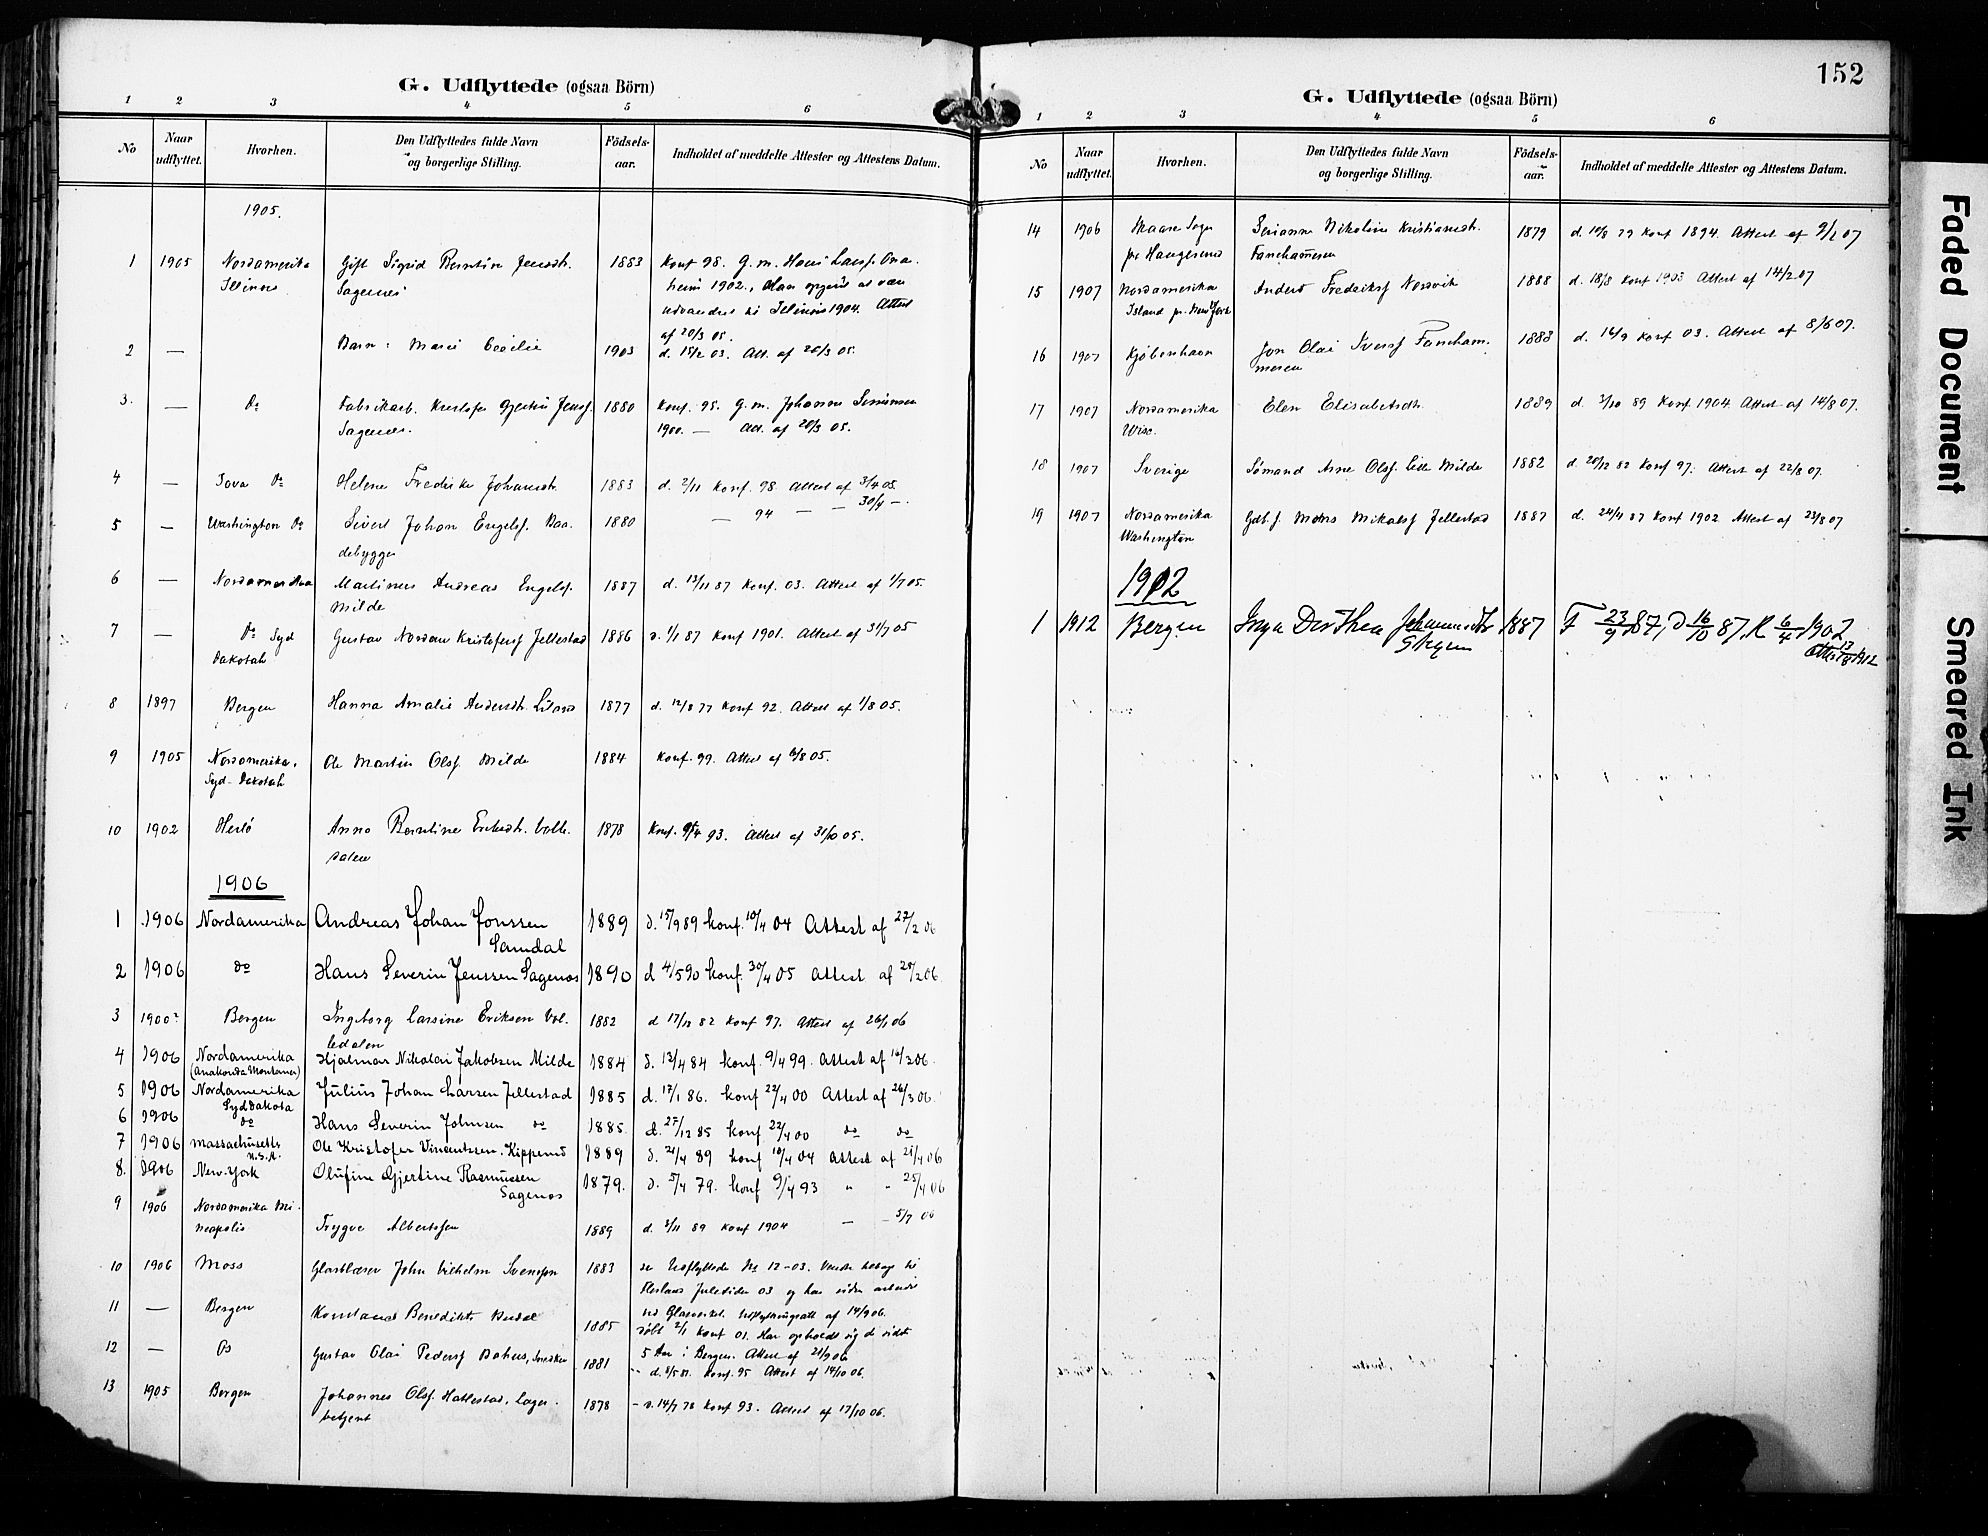 G. Udflyttede (ogsaa Börn)
1 2 3 4 5 6
No
Naar udflyttet.
Hvorhen.
Den Udflyttedes fulde Navn og borgerlige Stilling.
Födsels-aar.
Indholdet af meddelte Attester og Attestens Datum.
1905.
1 1905 Nordamerika Gift Sigrid Berntine Jensdt. 1883 Konf 98. G. m. Hans
Illinois Sagenes 1902.,
1904. Attest
af 20/3 05.
2 — Barn: Marie Cecilie 1903 d. 15/2 03. Att. af 20/3 05.
3. — Do Fabrikarb. Kristofer Gjertin Jensf. 1880 Konf. 95. G. m. Johanna
Sagenes. 1900. — Att. af 20/3 05.
4 — Iova Do Helene Fredrike Johansdt. 1883 d. 2/11 Konf. 98. Attest af 3/4 05.
5 — Washington Do Sivert Johan Engelsf. 1880 — 94 — — 30/4 —.
6 — Nordamerika Martinus Andreas Engelsf. 1887 d. 13/11 87 Konf. 03. Attest af 1/7 05.
Milde
7 — Do Syd Gustav Nordan Kristofersf Jellestad 1886 d. 1/1 87 Konf 1901. Attest af 31/7 05
Dakotah
8 1897 Bergen Hanna Amalie Andersdt. 1877 d. 12/8 77 Konf 92. Attest af 1/8 05.
9 1905 Nordamerika, Ole Martin Olsf. Milde 1884 Konf. 99. Attest af 6/8 05.
Syd-Dakotah
10 1902 Herlö Anna Berntine Eriksdt. Volle- 1878 Konf. 9/4 93. Attest af 31/10 05.
dalen
1906
1 1906 Nordamerika Andreas Johan Jonssen 1889 d. 15/9 89 konf. 10/4 04 Attest af 27/2 06
Samdal
2 1906 do Hans Severin Jenssen Sagenes 1890 d 4/5 90 konf. 30/4 05 Attest af 28/2 06.
3 1900? Bergen Ingeborg Larsine Eriksen Vol- 1882 d 17/12 82 Konf 97. Attest af 26/1 06
ledalen
4 1906 Nordamerika Hjalmar Nikolai Jakobsen Milde 1884 d. 13/4 84 konf. 9/4 99. Attest af 16/2 06.
(Anakonda Montana)
5 1906 Nordamerika Julius Johan Larsen Jellestad 1885 d. 17/1 86. konf 22/4 00 Attest af 26/3 06.
Syd Dakota
6 1906 do Hans Severin Johnsen do 1885. d. 27/12 85 konf 22/4 00 do do
7 1906 Massachusetts Ole Kristofer Vincentssen, Kippersund 1889 d. 21/4 89 konf 10/4 04 Attest af 21/4 06
U.S.A.
8. 1906 New-York Olufine Gjertine Rasmussen 1879. d. 5/4 79. konf 9/4 93 " " 25/4 06
Sagenes
9 1906 Nordamerika Mi- Trygve Albertsen 1889 d. 3/11 89 Konf 1904 — — 5/7 06
neapolis
10 1906 Moss Glasblæser John Vilhelm Svensson 1883 se Udflyttede No 12-03. Vendte tilbage til
Juletider 03 og har siden arbeidet
ved Glasverket. Udflytningsatt af 14/9 06.
11 — Bergen Konstanse Benedikte 1885 döbt 2/1 Konf 01. Har opholdt sig de sidste
5 Aar i Bergen. Attest af 21/9 06
12 — Os Gustav Olai Pedersf 1881 d. 8/5 81 Konf. 95 Attest af 14/10 06.
13 1905 Bergen Johannes Olsf. Hatlestad, Lager- 1878 - d. 14/7 78 Konf 93. Attest af 17/10 06.
betjent
152
G. Udflyttede (ogsaa Börn)
1 2 3 4 5 6
No
Naar udflyttet.
Hvorhen.
Den Udflyttedes fulde Navn og borgerlige Stilling.
Födsels-aar.
Indholdet af meddelte Attester og Attestens Datum.
14 1906 Sogn Serianna Nikoline Kristiansdt. 1879 d. 10/8 79 Konf 1894. Attest af 9/2 07
pr Haugesund Fanehammeren
15 1907 Nordamerika Anders Fredriksf Nordvik 1888 d. 18/8 Konf 1903 Attest af 14/2 07
Island pr. New York
16 1907 Kjøbenhavn Jon Olai Iversf Faneham- 1888 d. 16/9 Konf 03. Attest af 8/6 07.
meren
17 1907 Nordamerika Elen Elisabetsdt. 1889 d. 3/10 89 Konf. 1904. Attest af 14/8 07.
Wisc.
18 1907 Sverige Sømand Arne Olsf. Lille Milde 1882 d. 20/12 82 Konf 97. Attest af 22/8 07.
19 1907 Nordamerika Gdb. s. Mons Mikalsf Jellestad 1887 d. 24/4 87 Konf 1902 Attest af 23/8 07
Washington
1912
1 1912 Bergen Inga Dorthea Johannesdtr 1887 F 23/9 87, D 16/10 87, K 6/4 1902
Skegen Attest 13/8 1912
Faded Document
Smeared Ink